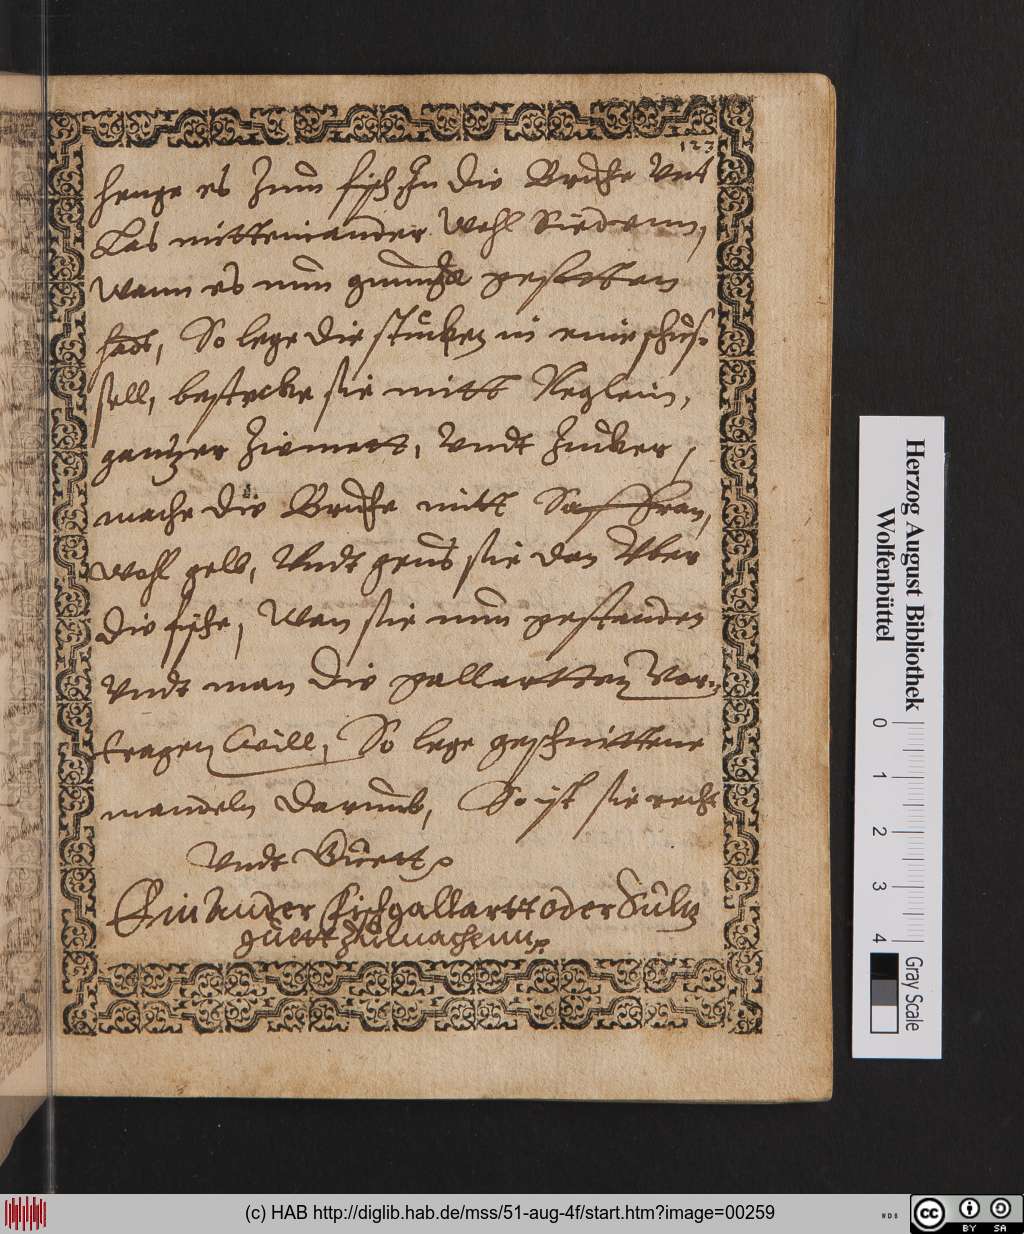 123
henge es Zum fisch In die Brühe Vnd
Las mitteinander Wohl Siedenn,
Wann es nun genung gesotten
hadt, So lege die stücken in eine schüs-
sell, bestecke sie mitt Neglein,
gantzer Ziemett, Vndt Zucker,
mache die Brühe mitt Saffran,
Wohl gelb, Vndt geus sie dan Vber
die fische, Wan sie nun gestanden
Vndt man die gallartten Vor-
tragen Will, So lege geschnittene
mandeln darumb, So ist sie recht
Vndt Guett
Ein Ander Fischgallartt oder Sultz
guett Zu Machenn
Herzog August Bibliothek
Wolfenbüttel
0 1 2 3 4
Gray Scale
(c) HAB http://diglib.hab.de/mss/51-aug-4f/start.htm?image=00259
WDB
cc BY SA